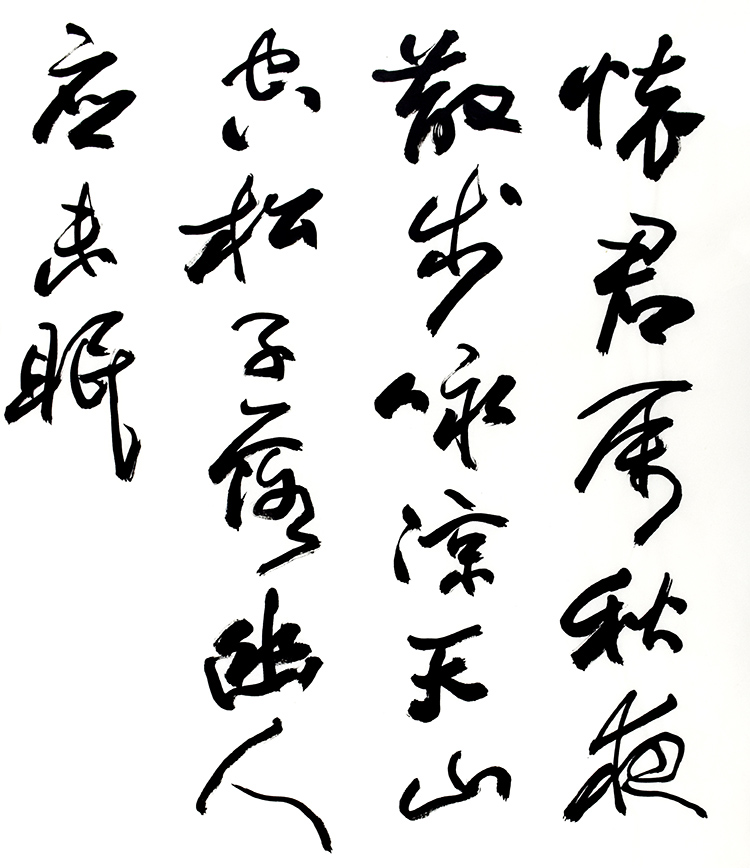 怀君属秋夜
散步咏凉天山
空松子落幽人
应未眠